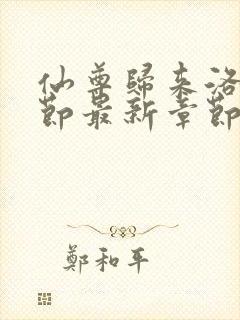 仙尊歸來洛
節最新章節
鄭和平